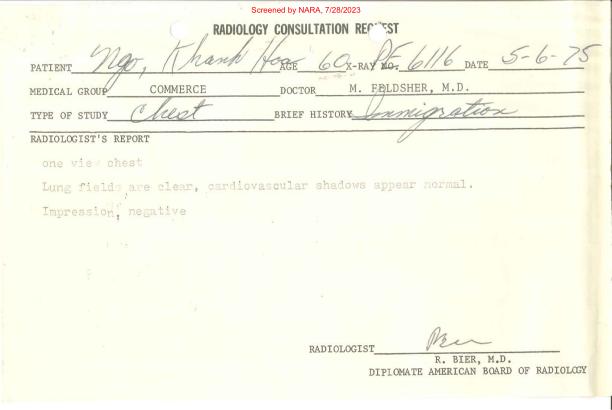 Screened by NARA, 7/28/2023
RADIOLOGY CONSULTATION REQUEST
PATIENT Ngo, Khanh Hoa AGE 60 X-RAY NO. PE 6116 DATE 5-6-75
MEDICAL GROUP COMMERCE DOCTOR M. FELDSHER, M.D.
TYPE OF STUDY Chest BRIEF HISTORY Immigration
RADIOLOGIST'S REPORT
one view chest
Lung fields are clear, cardiovascular shadows appear normal.
Impression, negative
RADIOLOGIST Bier
R. BIER, M.D.
DIPLOMATE AMERICAN BOARD OF RADIOLOGY